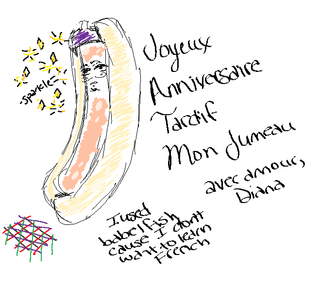 Joyeux
Anniversaire
Tardif
Mon Jumeau
avec amour,
Diana
sparkle
I used
babelfish
cause I don't
want to learn
French